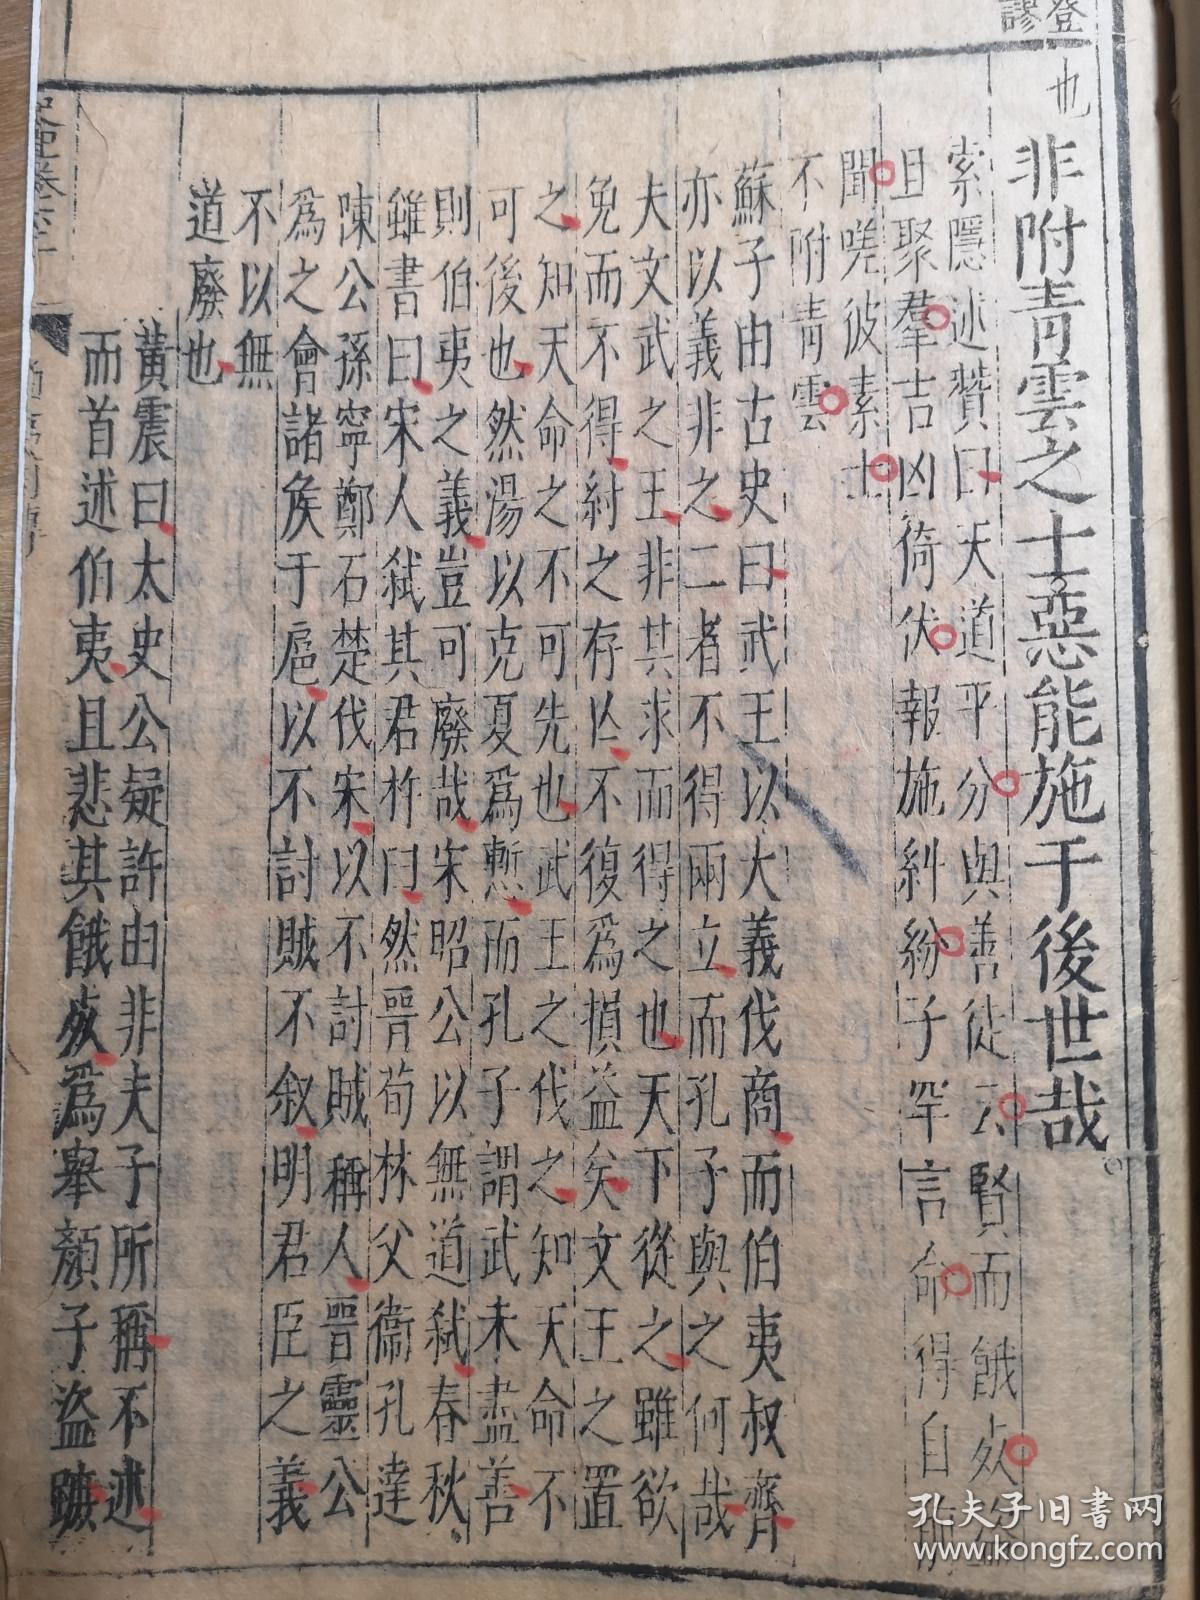 登
謬
也
非附青雲之士惡能施于後世哉。
索隱述贊曰天道平分與善徒云賢而餓死盜
且聚羣吉凶倚伏報施糾紛子罕言命得自前
聞嗟彼素士
不附青雲
蘇子由古史曰武王以大義伐商而伯夷叔齊
亦以義非之二者不得兩立而孔子與之何哉
夫文武之王非其求而得之也天下從之雖欲
免而不得紂之存亡不復爲損益矣文王之置
之知天命之不可先也武王之伐之知天命不
可後也然湯以克夏爲慙而孔子謂武未盡善
則伯夷之義豈可廢哉宋昭公以無道弒春秋
雖書曰宋人弒其君杵臼然晉荀林父衞孔達
陳公孫寧鄭石楚伐宋以不討賊稱人晉靈公
爲之會諸侯于扈以不討賊不叙明君臣之義
不以無
道廢也
黃震曰太史公疑許由非夫子所稱不述
而首述伯夷且悲其餓死爲舉顏子盜蹠
史記卷六十一
孔夫子旧书网
www.kongfz.com